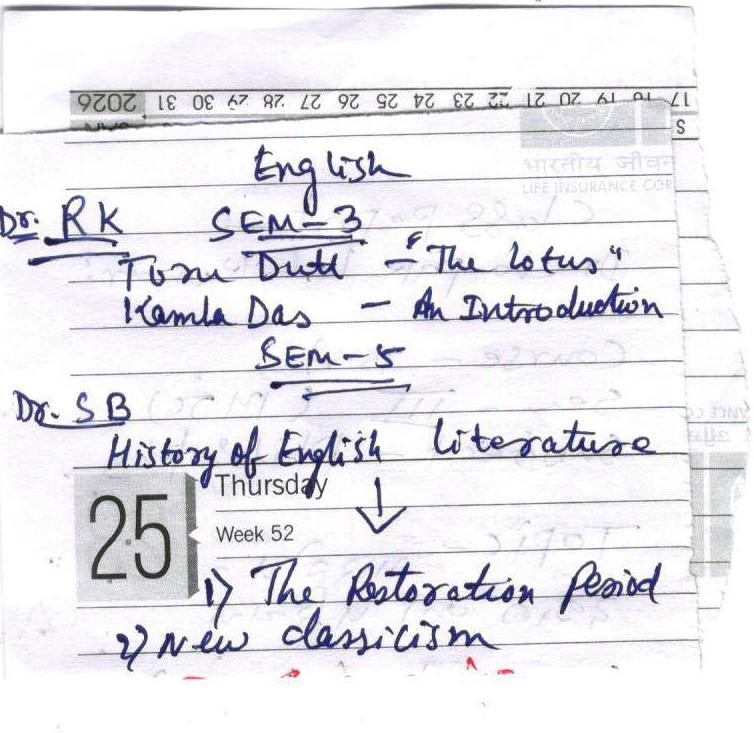 2026 31 30 29 28 27 26 25 24 23 22 21 20 19 18 17
S
भारतीय जीवन
LIFE INSURANCE COR
English
Dr. RK SEM-3
Toru Dutt - "The lotus"
Kamla Das - An Introduction
SEM-5
Dr. SB
History of English literature
Thursday
25
Week 52
1) The Restoration Period
2) New classicism